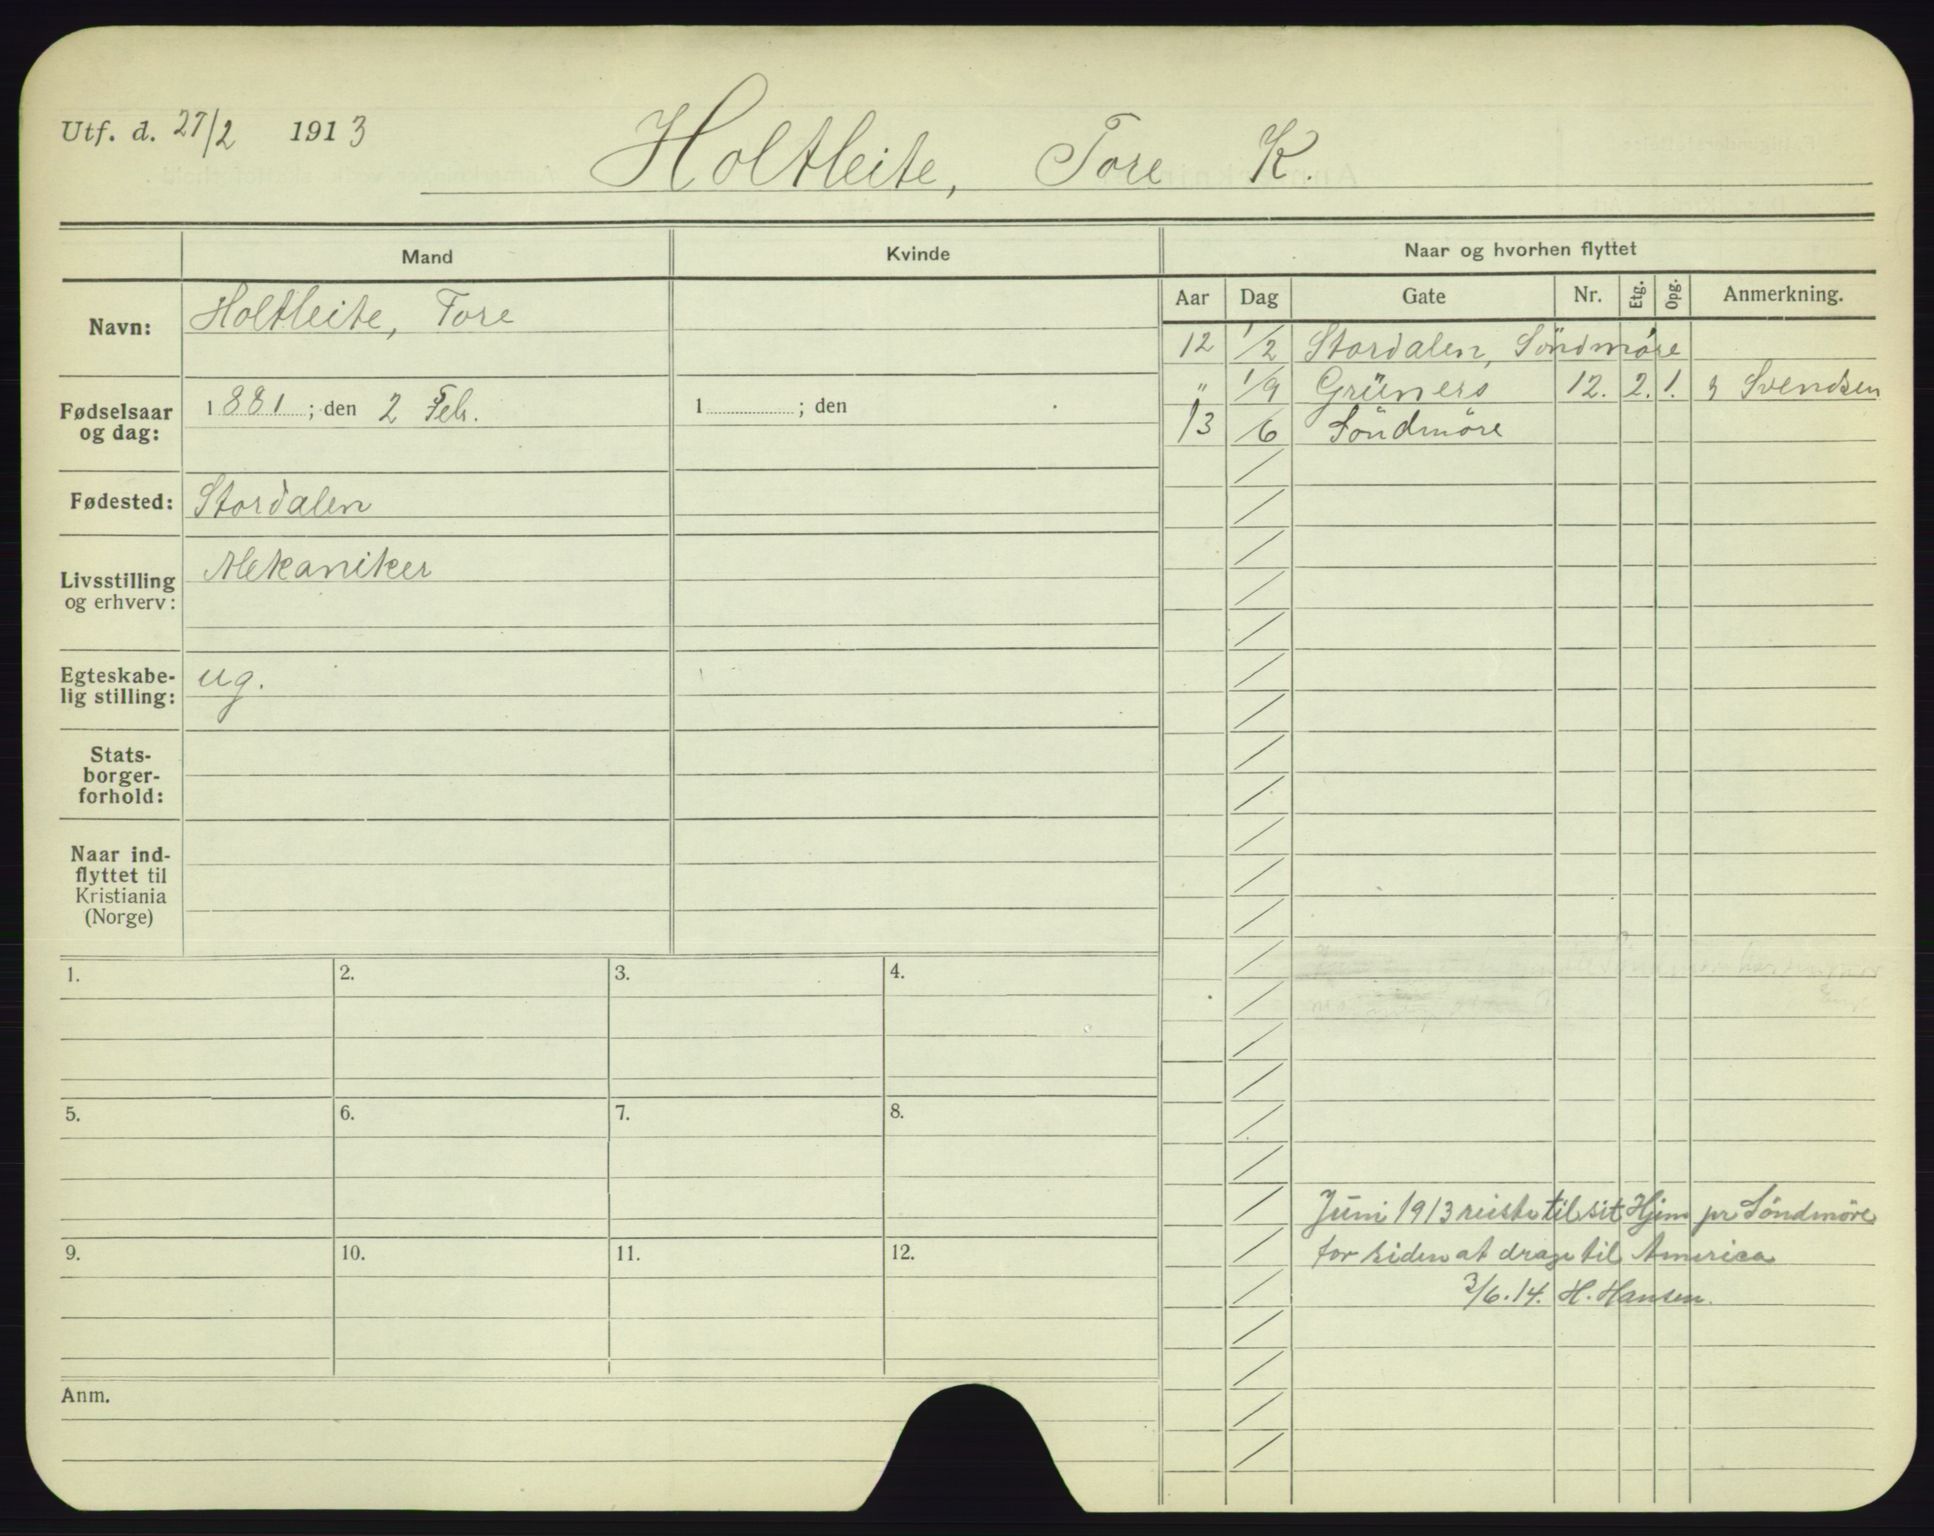 Utf. d. 27/2 1913
Holtleite, Tore K.
Mand
Kvinde
Naar og hvorhen flyttet
Aar Dag Gate Nr. Etg. Opg. Anmerkning.
Navn: Holtleite, Tore
Fødselsaar og dag: 1881; den 2 Feb. 1 ; den
Fødested: Stordalen
Livsstilling og erhverv: Mekaniker
Egteskabe-
lig stilling: ug.
Stats-
borger-
forhold:
Naar ind-
flyttet til
Kristiania
(Norge)
12 1/2 Stordalen, Söndmöre
" 1/9 Grüners 12. 2. 1. Svendsen
13 /6 Söndmöre
1. 2. 3. 4.
5. 6. 7. 8.
9. 10. 11. 12.
Juni 1913 reiste til sit Hjem pr Söndmöre
for siden at drage til America
3/6.14. H. Hansen.
Anm.